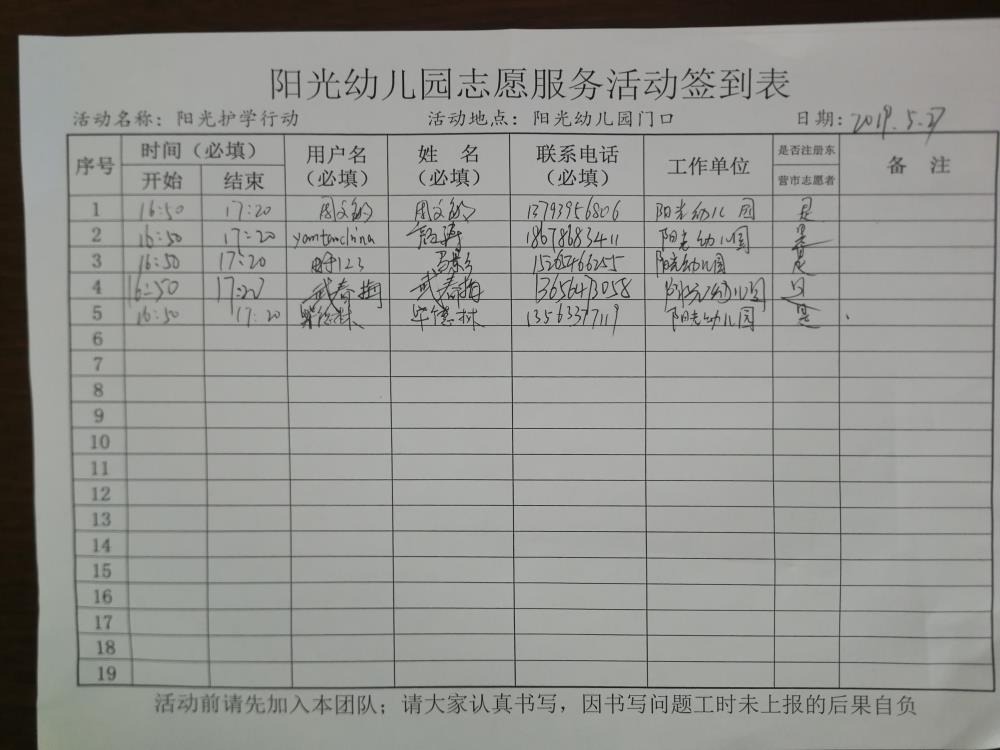 阳光幼儿园志愿服务活动签到表
活动名称：阳光护学行动 活动地点：阳光幼儿园门口 日期：2019.5.27
序号 时间（必填） 开始 结束 用户名（必填） 姓 名（必填） 联系电话（必填） 工作单位 是否注册东营市志愿者 备 注
1 16:50 17:20 周文敏 周文敏 13793956806 阳光幼儿园 是
2 16:50 17:20 18678683411 阳光幼儿园 是
3 16:50 17:20 15265466255 阳光幼儿园 是
4 16:50 17:20 武春梅 武春梅 13656473058 阳光幼儿园
5 16:50 17:20 毕德林 毕德林 13563377119 阳光幼儿园 是
6
7
8
9
10
11
12
13
14
15
16
17
18
19
活动前请先加入本团队；请大家认真书写，因书写问题工时未上报的后果自负